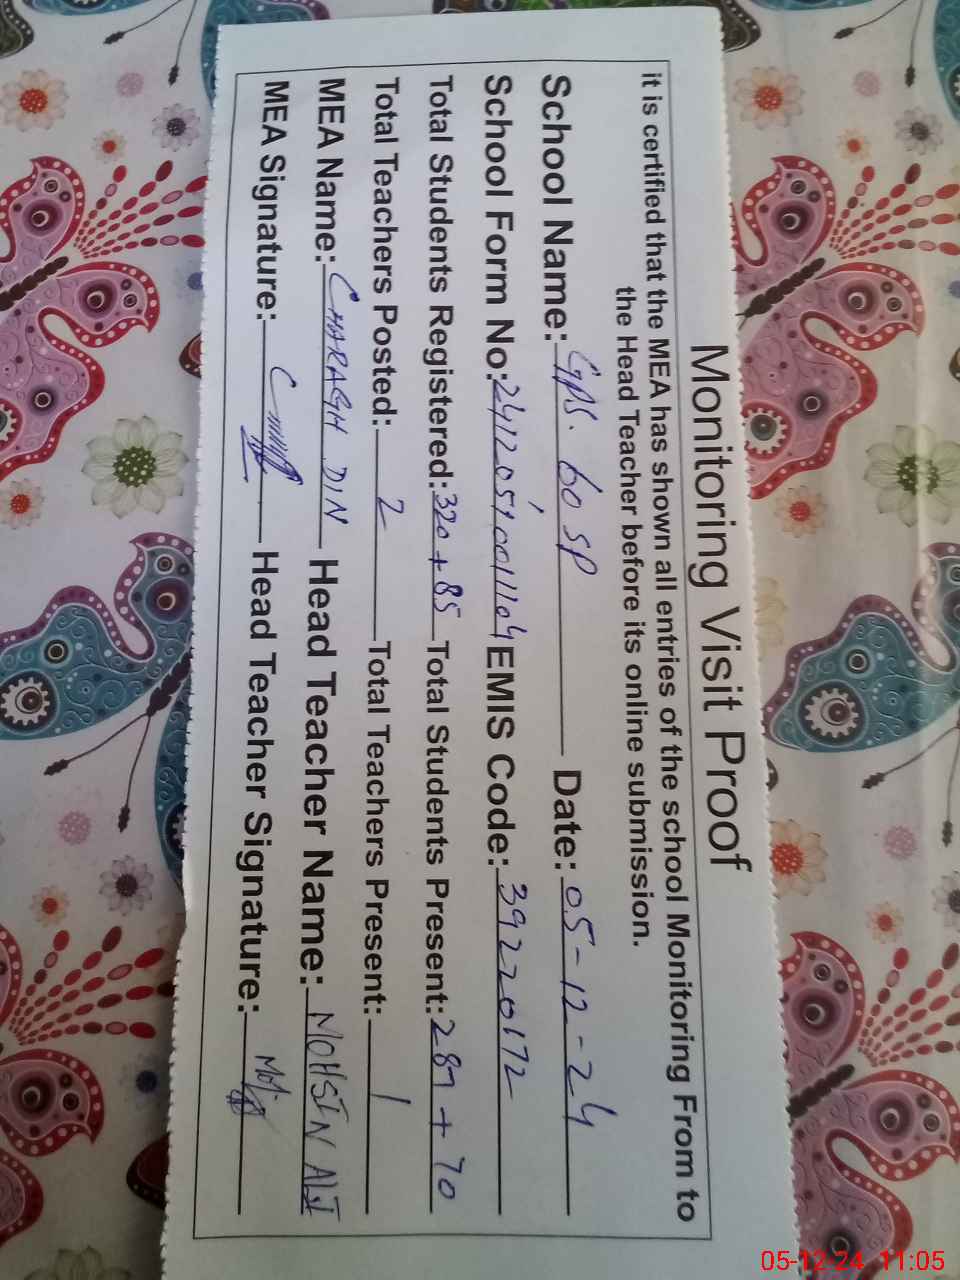 Monitoring Visit Proof
it is certified that the MEA has shown all entries of the school Monitoring From to
the Head Teacher before its online submission.
School Name: GPS. 60 SP Date: 05-12-24
School Form No: 2412051001104 EMIS Code: 39220172
Total Students Registered: 320 + 85 Total Students Present: 287 + 70
Total Teachers Posted: 2 Total Teachers Present: 1
MEA Name: CHARAGH DIN Head Teacher Name: MOHSIN ALI
MEA Signature: Head Teacher Signature:
05-12-24 11:05